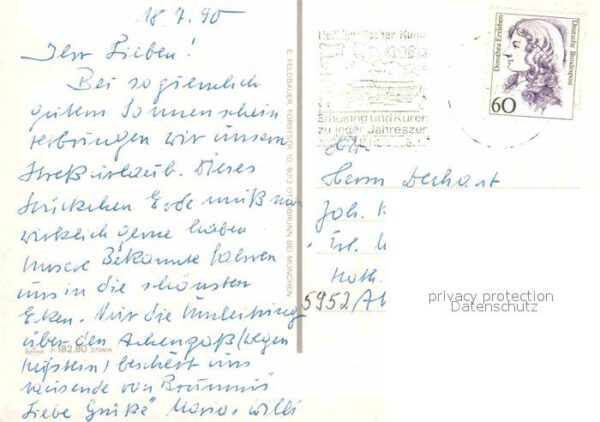 18.7.90
Ihr Lieben!
Bei so ziemlich
gutem Sonnenschein
verbringen wir unseren
Dieses
Stückchen Erde muß man
wirklich gerne haben
Unsere Bekannte fahren
uns in die schönsten
Ecken. Nur die Umleitung
über den (wegen
) beschert uns
tausende von
Liebe Grüße Willi
E. FELDBAUER, FORSTSTR. 10, 8012 OTTOBRUNN BEI MÜNCHEN
182.80 270404
Erholung und Kuren
zu jeder Jahreszeit
Dorothea Erxleben
Deutsche Bundespost
60
Herrn Dechant
Joh. K
5952/
privacy protection
Datenschutz